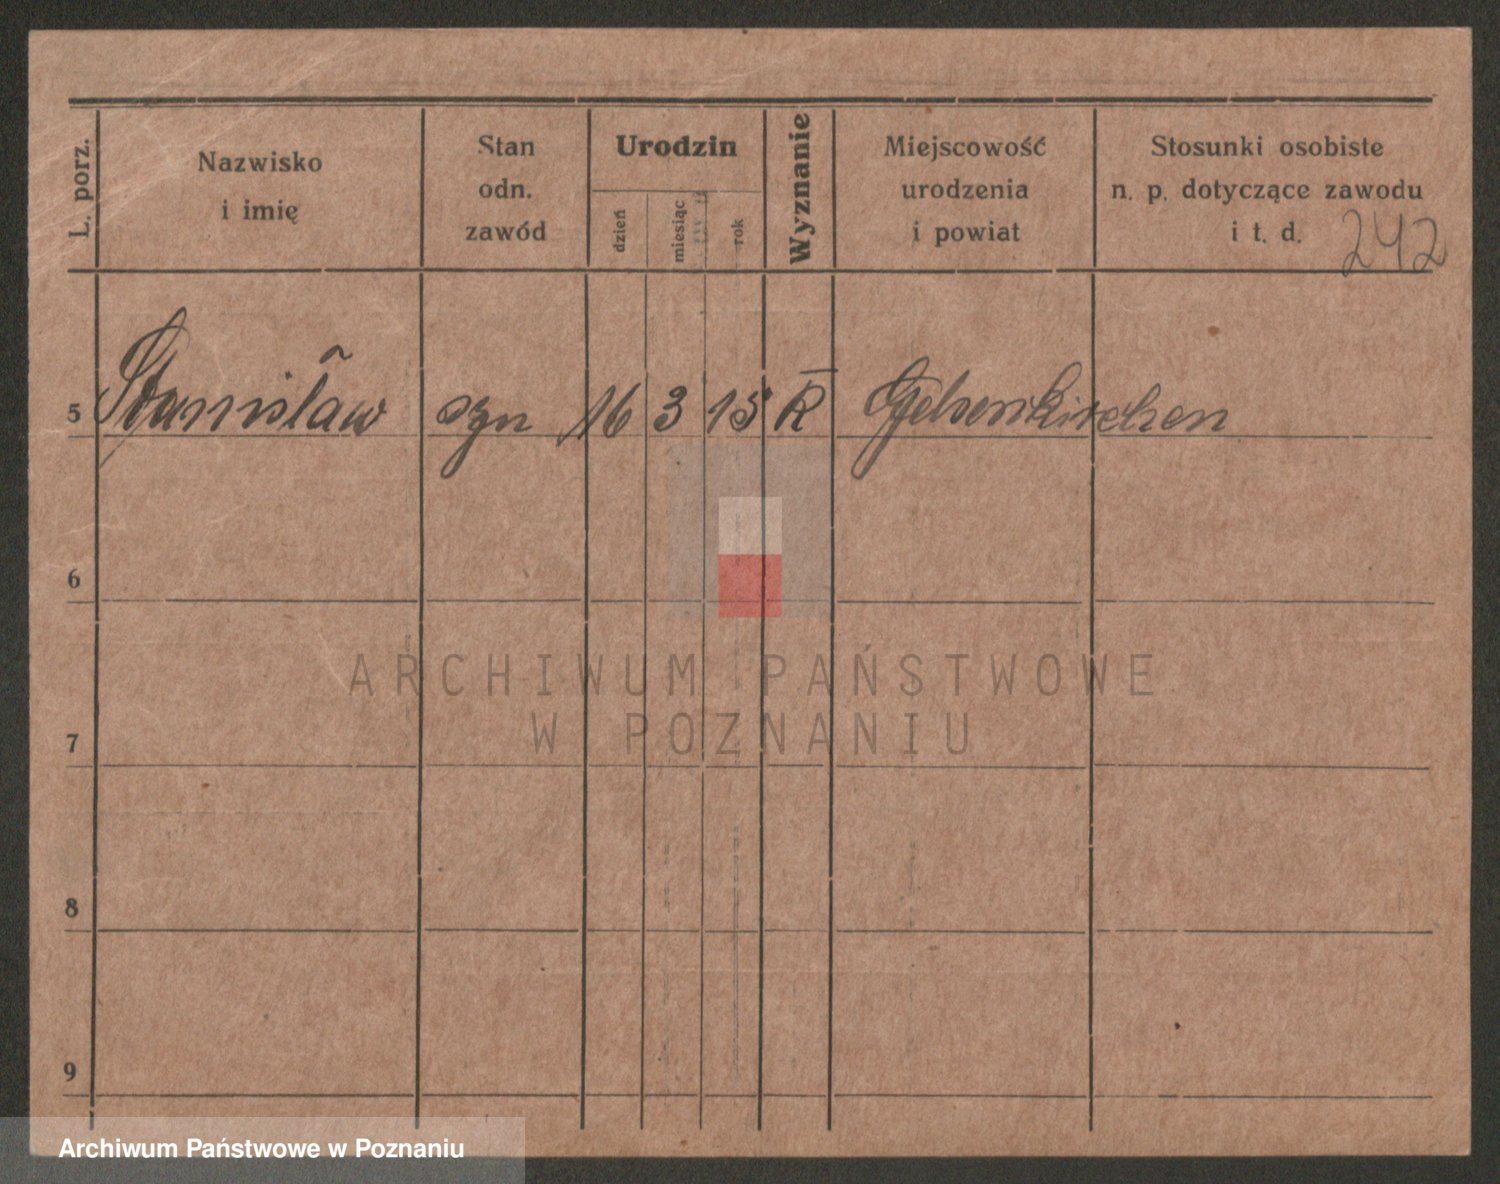 L. porz.
Nazwisko
i imię
Stan
odn.
zawód
Urodzin
dzień
miesiąc
rok
Wyznanie
Miejscowość
urodzenia
i powiat
Stosunki osobiste
n. p. dotyczące zawodu
i t. d.
242
5 Stanisław syn 16 3 15 K Gelsenkirchen
6
7
8
9
ARCHIWUM PAŃSTWOWE
W POZNANIU
Archiwum Państwowe w Poznaniu